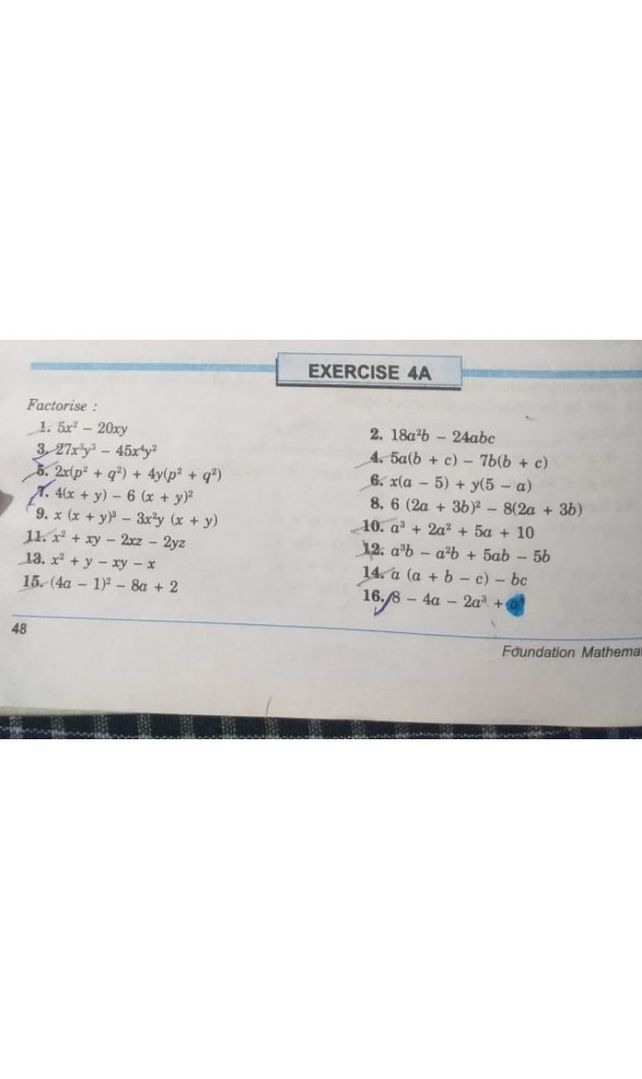 EXERCISE 4A
Factorise :
1. 5x² – 20xy
2. 18a²b – 24abc
3. 27x³y³ – 45x⁴y²
4. 5a(b + c) – 7b(b + c)
5. 2x(p² + q²) + 4y(p² + q²)
6. x(a – 5) + y(5 – a)
7. 4(x + y) – 6 (x + y)²
8. 6 (2a + 3b)² – 8(2a + 3b)
9. x (x + y)³ – 3x²y (x + y)
10. a³ + 2a² + 5a + 10
11. x² + xy – 2xz – 2yz
12. a³b – a²b + 5ab – 5b
13. x² + y – xy – x
14. a (a + b – c) – bc
15. (4a – 1)² – 8a + 2
16. 8 – 4a – 2a³ + a⁴
48
Foundation Mathema